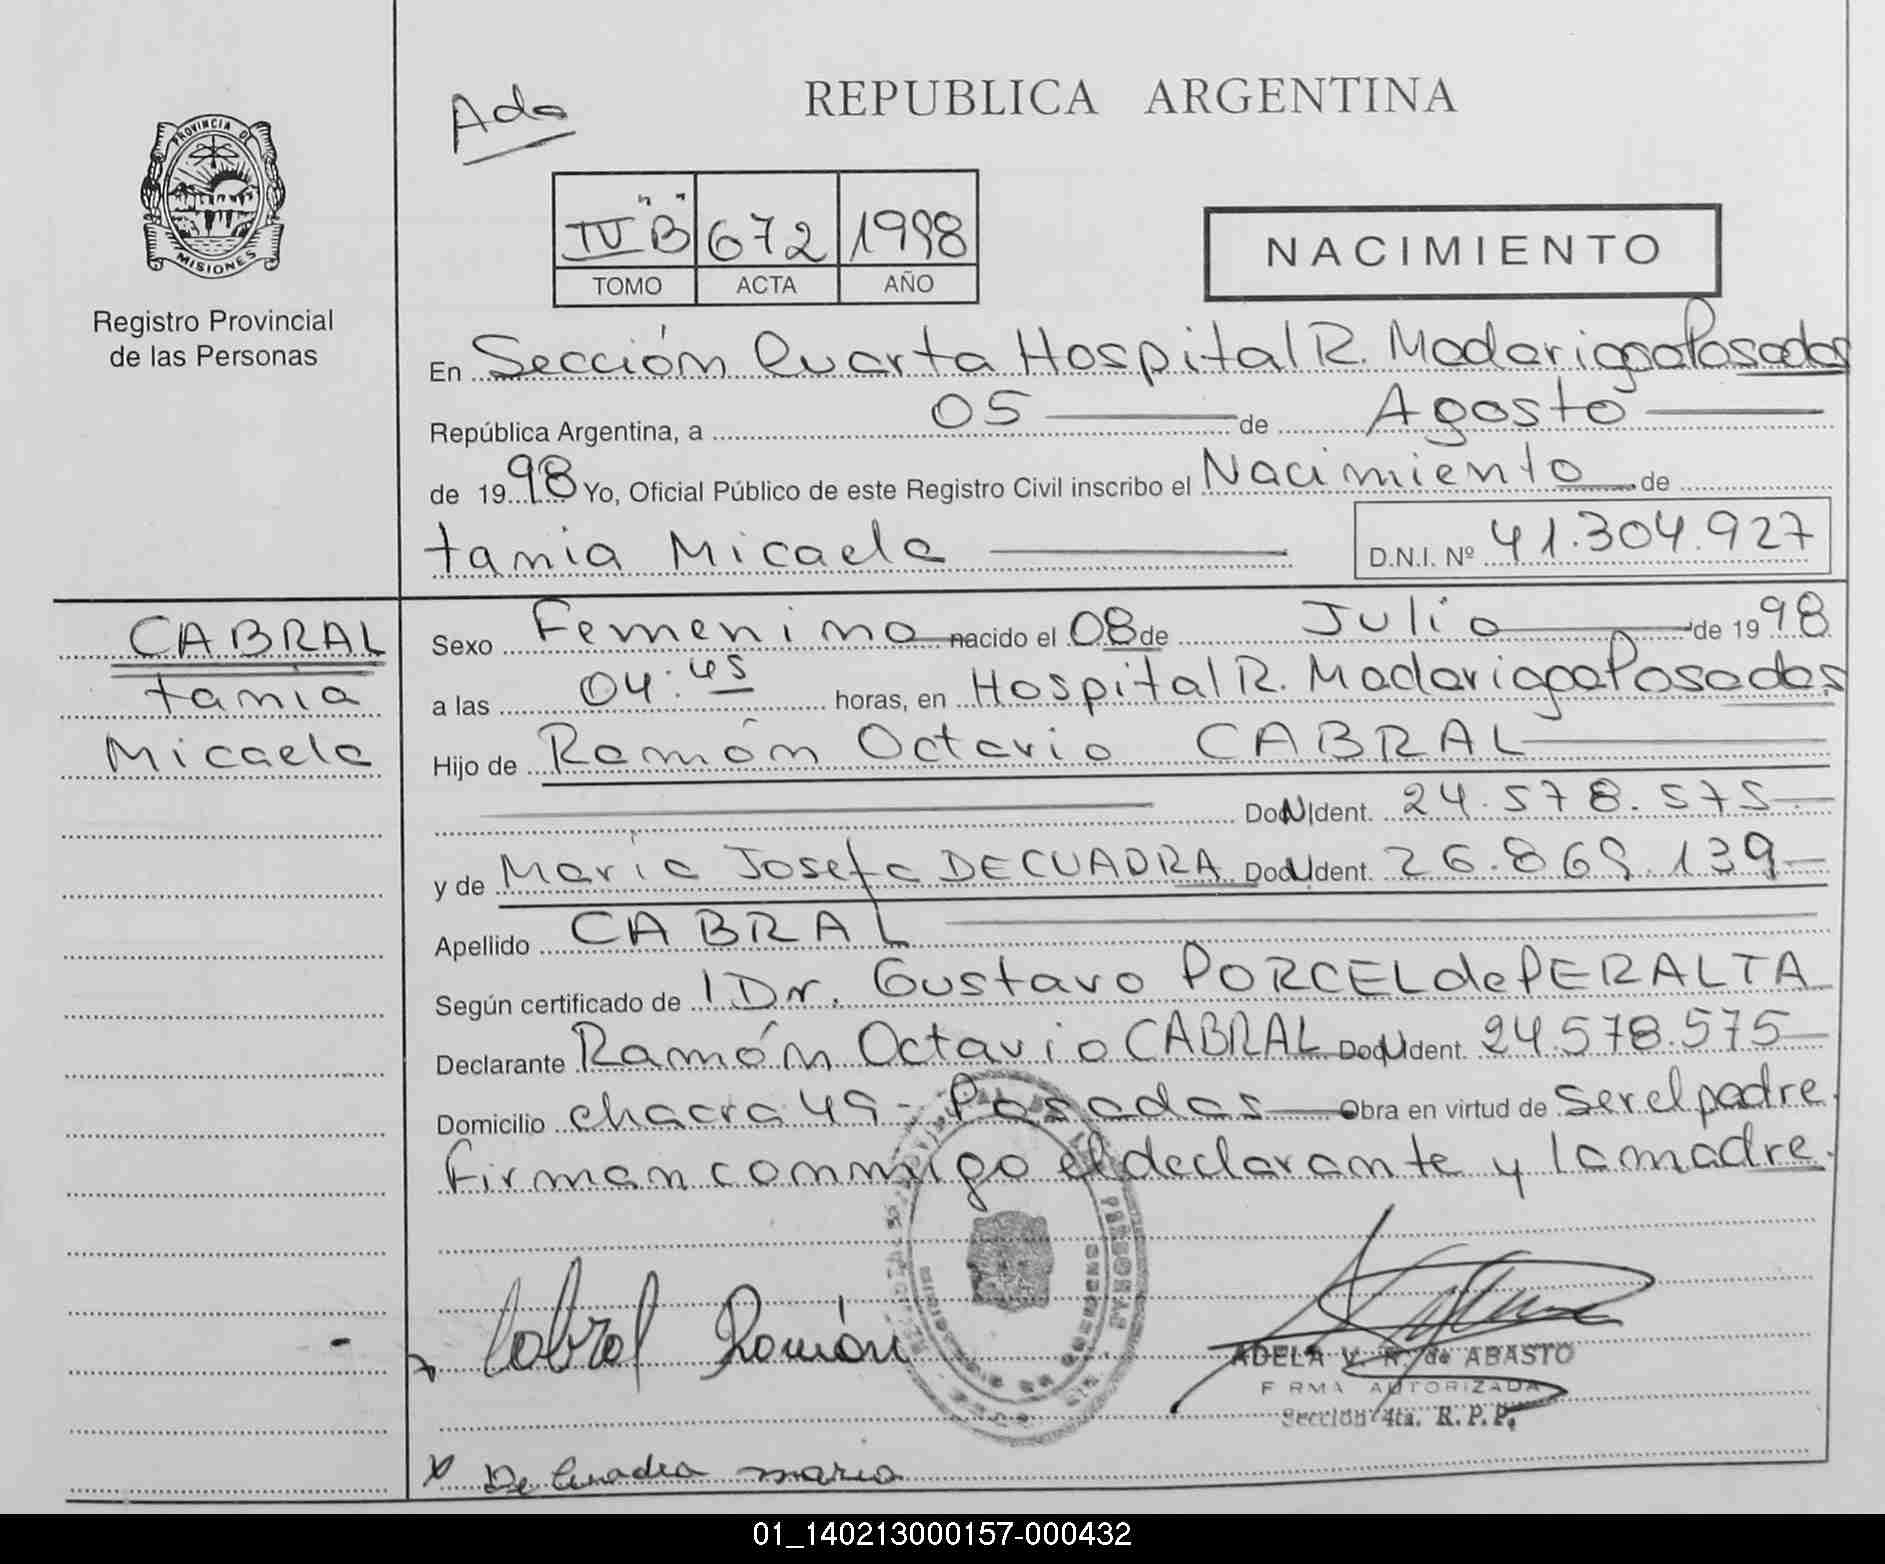 REPUBLICA ARGENTINA
PROVINCIA DE
MISIONES
Registro Provincial
de las Personas
IV "B" 672 1998
TOMO ACTA AÑO
NACIMIENTO
En Sección Cuarta Hospital R. Madariaga Posadas
República Argentina, a 05 de Agosto
de 1998 Yo, Oficial Público de este Registro Civil inscribo el Nacimiento de
tania Micaela D.N.I. Nº 41.304.927
CABRAL
tania
Micaela
Sexo Femenino nacido el 08 de Julio de 1998
a las 04:45 horas, en Hospital R. Madariaga Posadas
Hijo de Ramón Octavio CABRAL
Doc N Ident. 24.578.575
y de María Josefa DECUADRA Doc N Ident. 26.869.139
Apellido CABRAL
Según certificado de 1 Dr. Gustavo PORCEL de PERALTA
Declarante Ramón Octavio CABRAL Doc N Ident. 24.578.575
Domicilio chacra 49 - Posadas Obra en virtud de ser el padre.
Firman conmigo el declarante y la madre.
Cabral Ramón
ADELA V. R. de ABASTO
FIRMA AUTORIZADA
Sección 4ta. R.P.P.
x De Cuadra maria
01_140213000157-000432